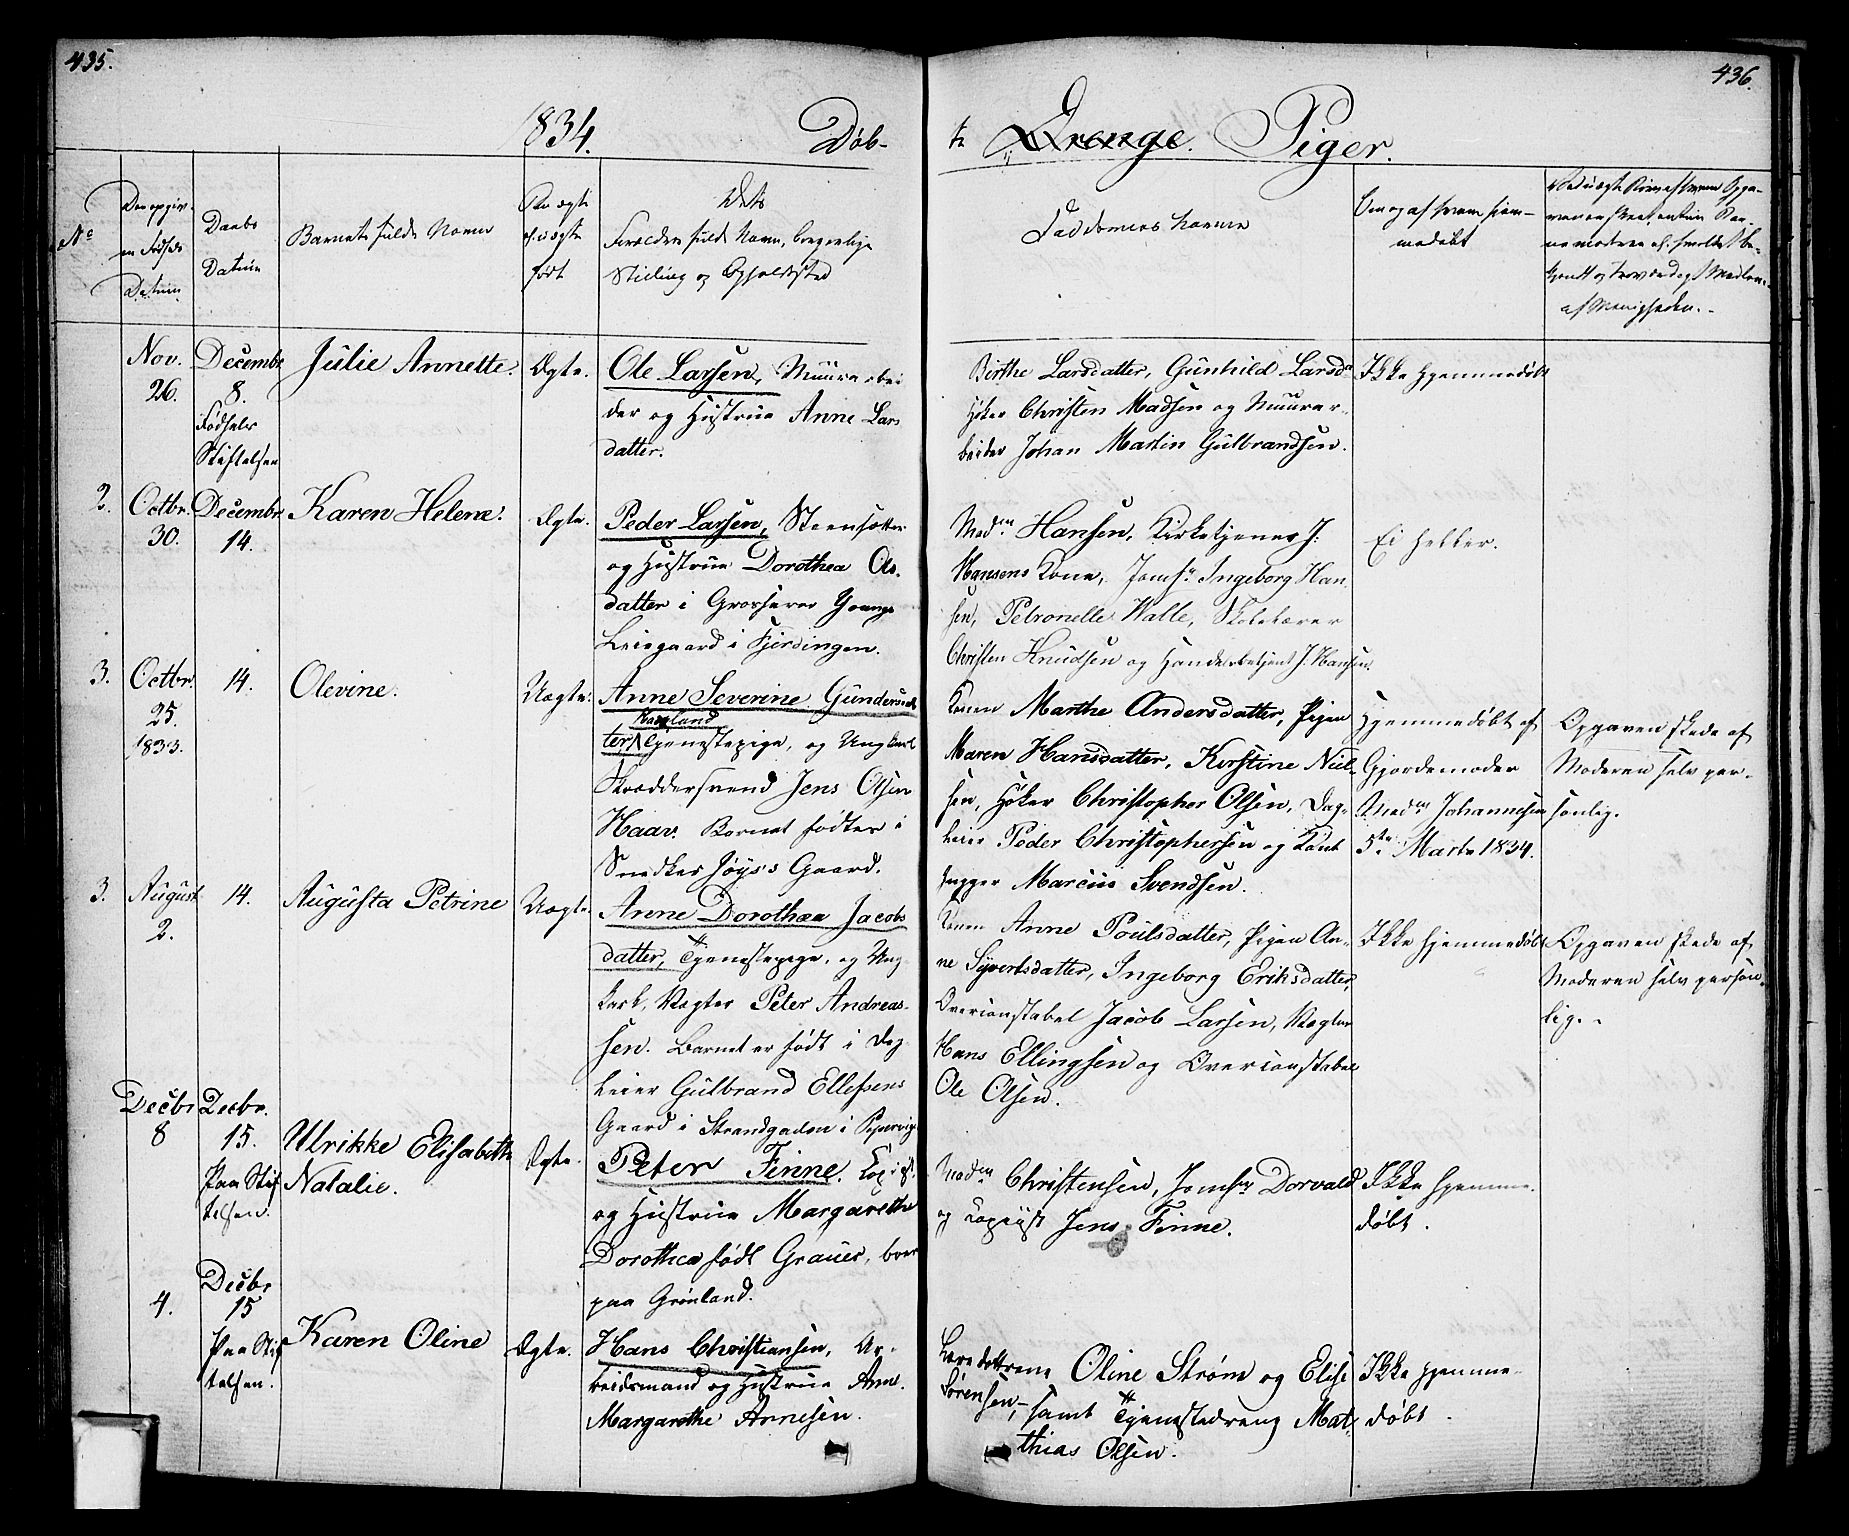 435.
436.
1834.
Døb-
te Drenge. Piger.
No
Den opgiv-
ne Føds.
Datum.
Daabs
Datum
Barnets fulde Navn
Om ægte
el. uægte
født
Dets
Forældres fulde Navn, borgerlige
Stilling og Opholdssted
Faddernes Navne
Om og af hvem hjem-
medøbt
af Menigheden.
Nov.
26.
Decembr
8.
Fødsels
Stiftelsen
Julie Annette.
Ægte.
Ole Larsen, Muurarbei
der og Hustrue Anne Lars
datter.
Birthe Larsdatter, Gunhild Larsdr
Høker Christen Madsen og Muurar-
beider Johan Martin Gulbrandsen.
Ikke hjemmedøbt
2.
Octbr.
30.
Decembr.
14.
Karen Helene.
Ægte.
Peder Larsen, Steensætter
og Hustrue Dorothea Ols.
datter i Grosserer Youngs
Leiegaard i Fjerdingen.
Madm Hansen, Kirketjener J.
Hansens Kone, Jomfr Ingeborg Han
sen, Petronelle Walle, Skolelærer
Christen Knudsen og Handelsbetjent J. Hansen.
Ei heller.
3.
Octbr.
25.
1833.
14.
Olevine.
Uægte.
Anne Severine Gundersdat
ter Haagland Tjenestepige, og Ungkarl
Skræddersvend Jens Olsen
Haav. Barnet født i
Snedker Jøys's Gaard.
Konen Marthe Andersdatter, Pigen
Maren Hansdatter, Kirstine Niel-
sen, Høker Christopher Olsen, Dag-
leier Peder Christophersen og
hugger Marcus Svendsen.
Hjemmedøbt af
Gjordemoder
Madm Johannesen
5te Marts 1834.
Opgaven skede af
Moderen selv per-
sonlig.
3.
August
2.
14.
Augusta Petrine
Uægte.
Anne Dorothea Jacobs
datter, Tjenestepige, og Ung
karl, Vægter Peter Andreas-
sen. Barnet er født i Dag
leier Gulbrand Ellefsens
Gaard i Strandgaden i Pipervig
Konen Anne Poulsdatter, Pigen An-
ne Syvertsdatter, Ingeborg Eriksdatter,
Overconstabel Jacob Larsen, Vægter
Hans Ellingsen og Overconstabel
Ole Olsen.
Ikke hjemmedøbt
Opgaven skede af
Moderen selv person-
lig.
Decbr
8
Decbr.
15.
Paa Stif
telsen.
Ulrikke Elisabeth
Natalie.
Ægte.
Peter Finne, Copist
og Hustrue Margarethe
Dorothea født Grauer, boer
paa Grønland.
Madm Christensen, Jomfr Dorvald
og Copiist Jens Finne.
Ikke hjemme-
døbt.
4.
Decbr
15
Paa Stif
telsen.
Karen Oline
Ægte.
Hans Christiansen, Ar-
beidsmand og Hustrue Anne
Margarethe Arnesen.
Læredøttrene Oline Strøm og Elise
Sørensen, samt Tjenestedreng Mat-
thias Olsen.
Ikke hjemme-
døbt.